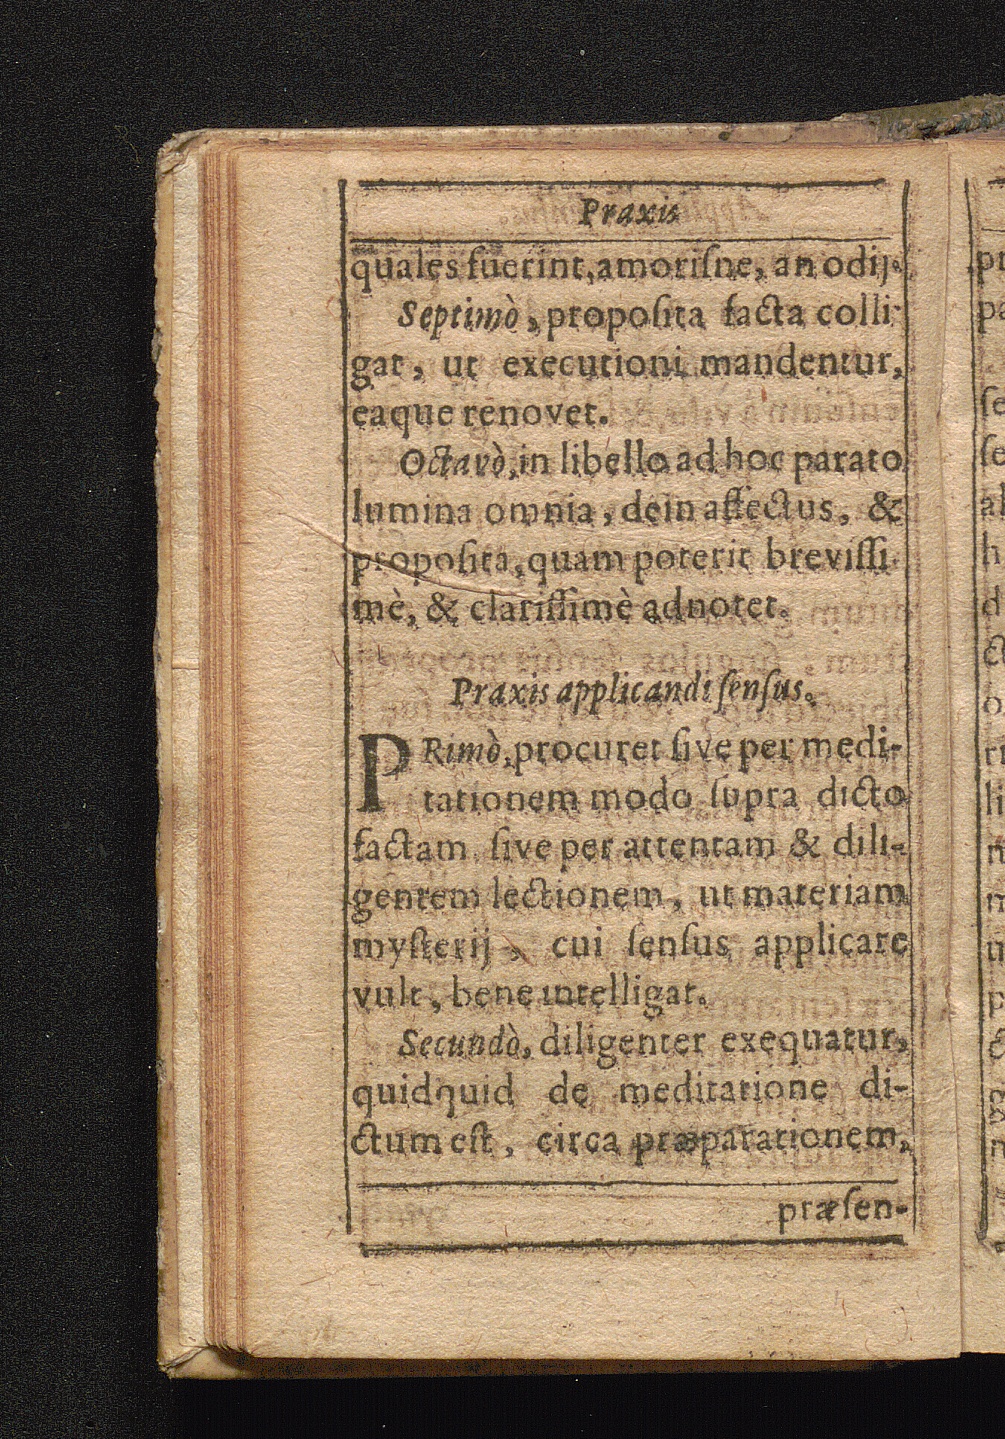 Praxis
quales fuerint, amorisne, an odij.
Septimò, proposita facta colli-
gat, ut executioni mandentur,
eaque renovet.
Octavò, in libello ad hoc parato
lumina omnia, dein affectus, &
proposita, quam poterit brevissi-
mè, & clarissimè adnotet.
Praxis applicandi sensus.
PRimò, procuret sive per medi-
tationem modo supra dicto
factam sive per attentam & dili-
gentem lectionem, ut materiam
mysterij, cui sensus applicare
vult, bene intelligat.
Secundò, diligenter exequatur,
quidquid de meditatione di-
ctum est, circa præparationem,
præsen-